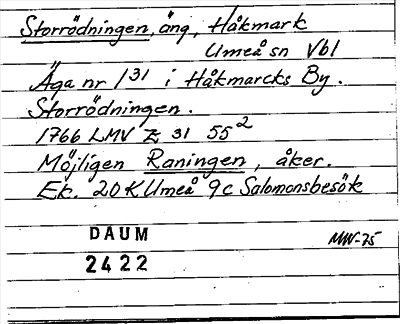 Storrödningen, äng, Håkmark
Umeå sn Vbl
Äga nr 131 i Håkmarcks By.
Storrödningen.
1766 LMV Z 31 55²
Möjligen Raningen, åker.
Ek. 20 K Umeå 9c Salomonsbesök
DAUM MW-75
2422